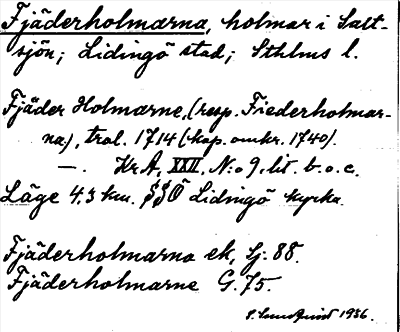 Fjäderholmarna, holmar i Salt-
sjön; Lidingö stad; Sthlms l.
Fjäder Holmarne, (resp. Fiederholmar-
na), trol. 1714 (kop. omkr. 1740).
—. Kr.A, XXII, N:o 9, lit. b. o. c.
Läge 4.3 km. SSÖ Lidingö kyrka.
Fjäderholmarna ek, Lj. 88.
Fjäderholmarne G. 75.
S. Lundquist 1936.